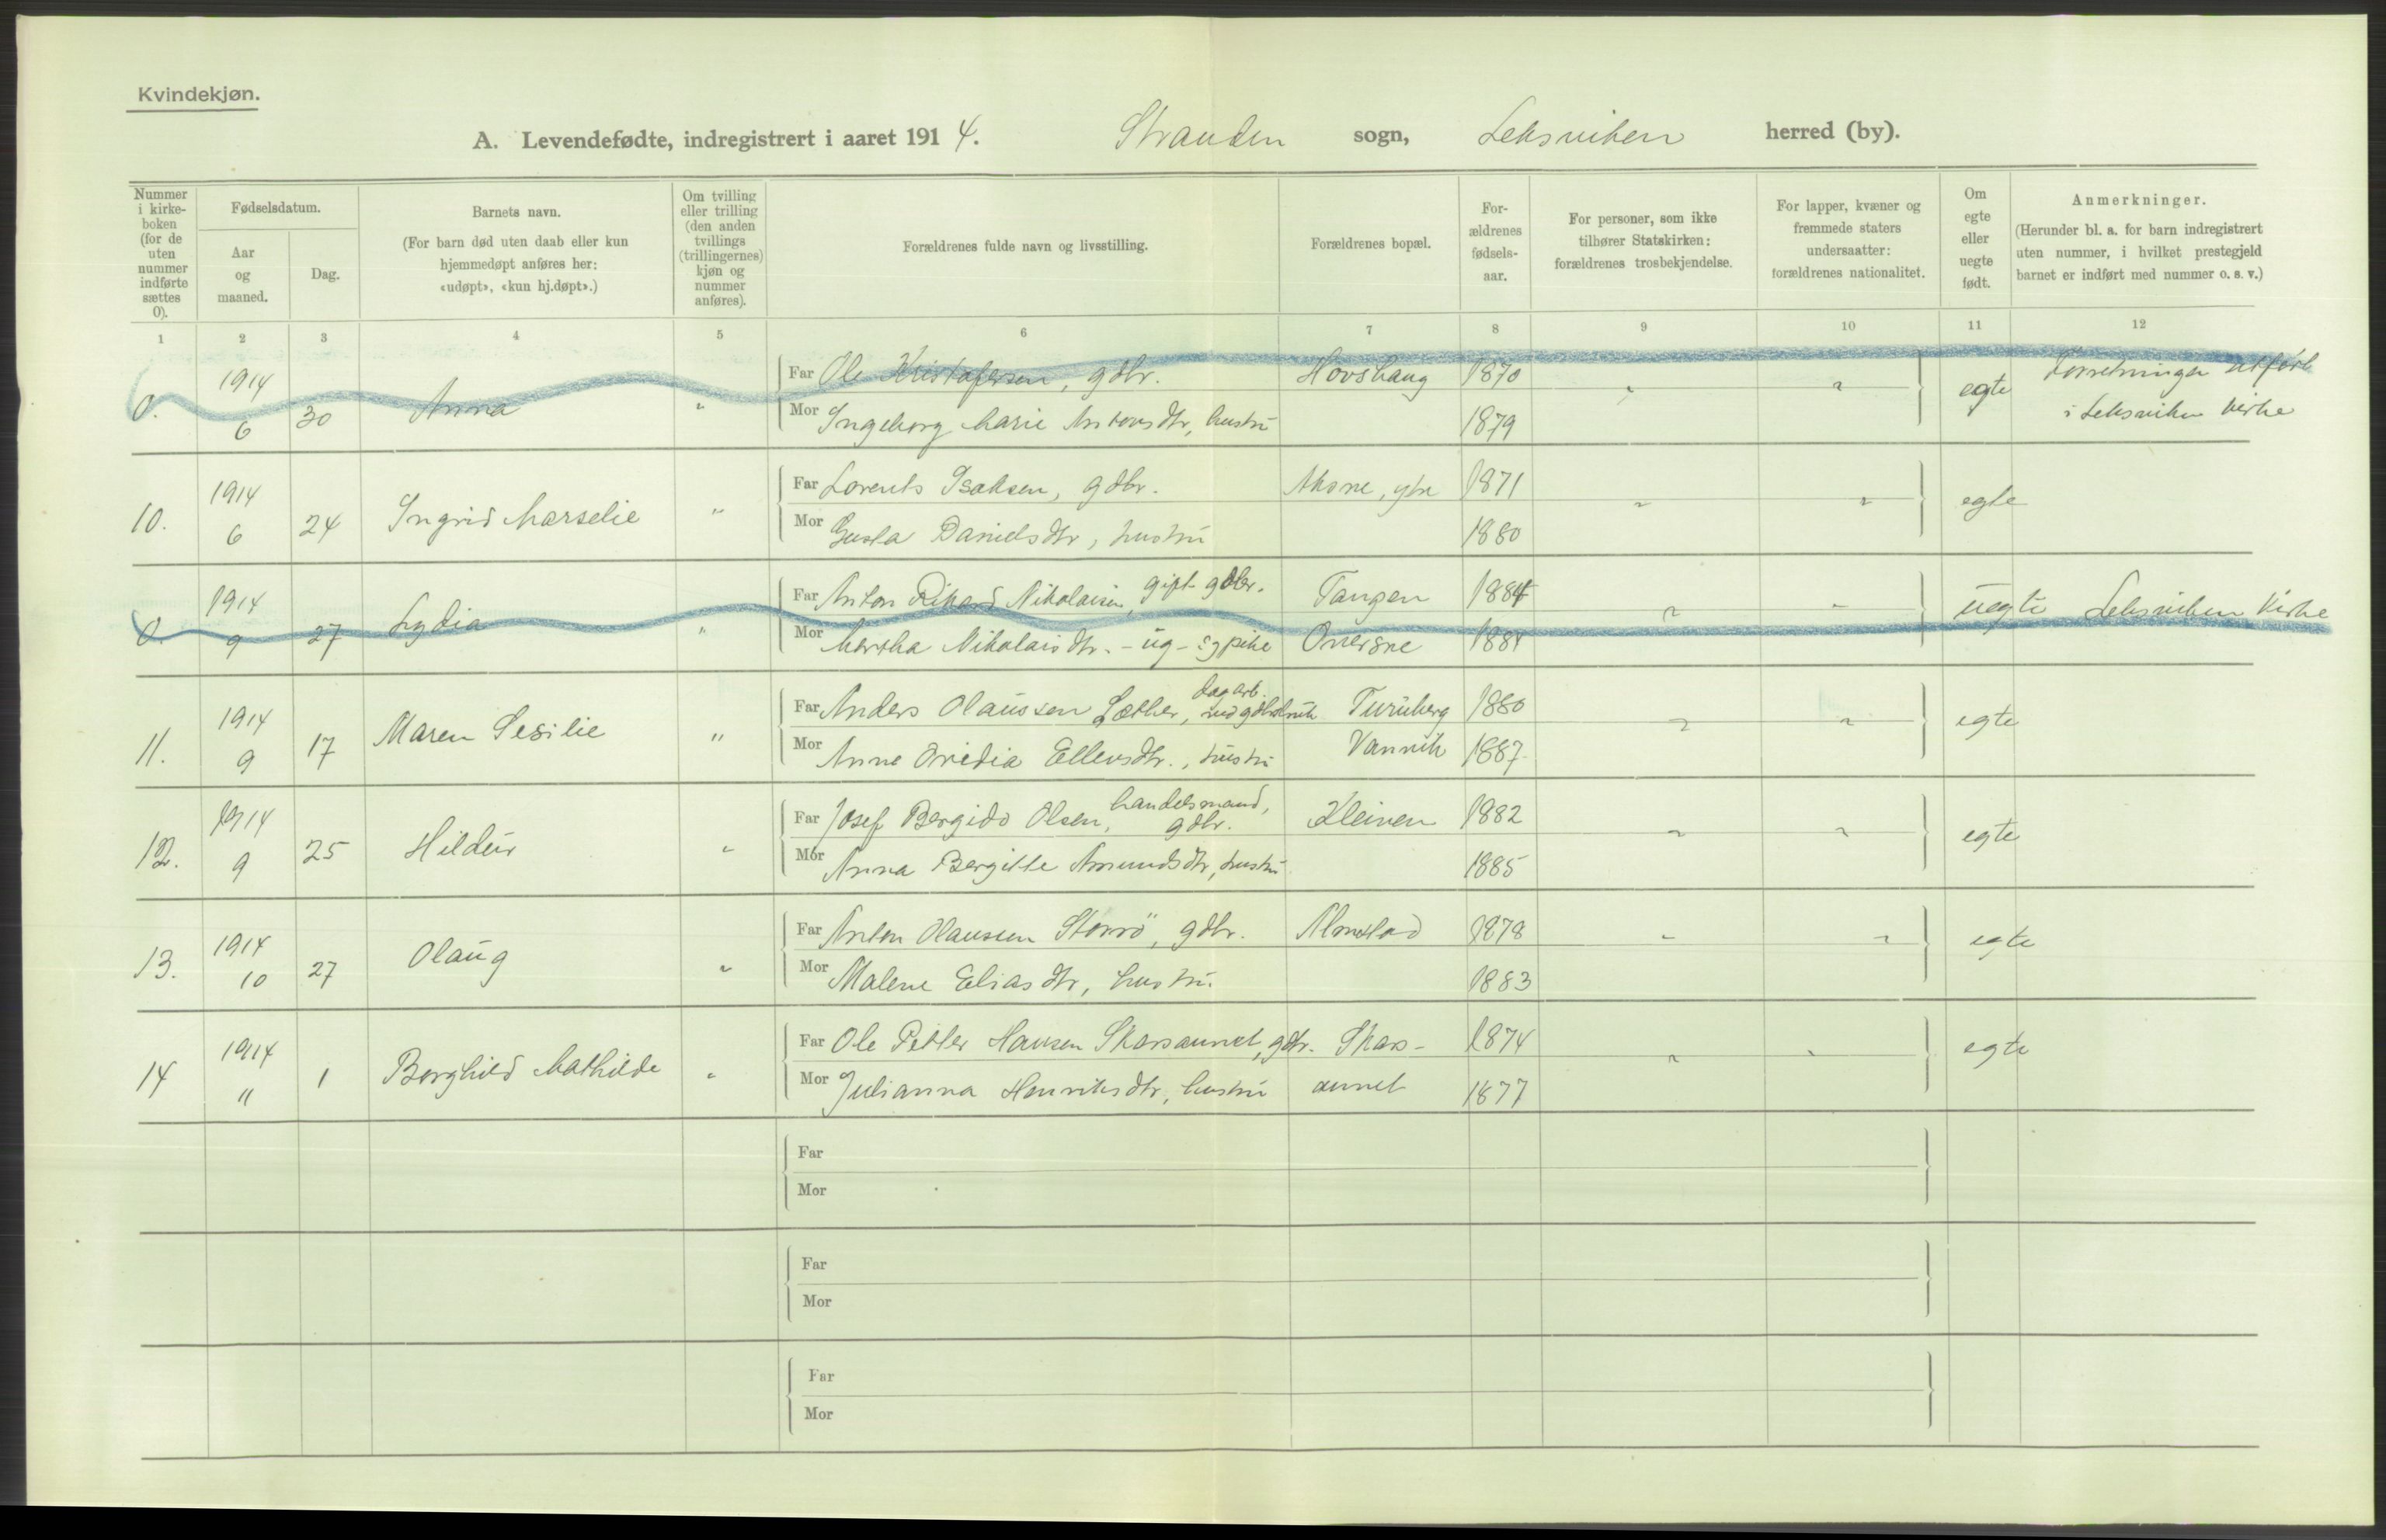 Kvindekjøn.
A. Levendefødte, indregistrert i aaret 1914. Stranden sogn, Leksviken herred (by).
Nummer i kirkeboken (for de uten nummer indførte sættes 0).
Fødselsdatum.
Aar og maaned.
Dag.
Barnets navn.
(For barn død uten daab eller kun hjemmedøpt anføres her: «udøpt», «kun hj.døpt».)
Om tvilling eller trilling (den anden tvillings (trillingernes) kjøn og nummer anføres).
Forældrenes fulde navn og livsstilling.
Forældrenes bopæl.
Forældrenes fødselsaar.
For personer, som ikke tilhører Statskirken: forældrenes trosbekjendelse.
For lapper, kvæner og fremmede staters undersaatter: forældrenes nationalitet.
Om egte eller uegte født.
Anmerkninger.
(Herunder bl. a. for barn indregistrert uten nummer, i hvilket prestegjeld barnet er indført med nummer o. s. v.)
1 2 3 4 5 6 7 8 9 10 11 12
0. 1914 6 30 Anna " Far Ole Kristofersen, gdbr. Hovshaug 1870 " " egte Forretningen utført
Mor Ingeborg Marie Antonsdtr, hustru 1879 i Leksviken kirke
10. 1914 6 24 Ingrid Marselie " Far Lorents Isaksen, gdbr. ytre 1871 " " egte
Mor Gusta Danielsdtr, hustru 1880
0. 1914 9 27 Lydia " Far Anton Rikard Nikolaisen, gift gdbr. Tangen 1884 " " uegte Leksviken kirke
Mor Martha Nikolaisdtr. - ug - sypike 1881
11. 1914 9 17 Maren Sesilie " Far Anders Olaussen Sæther, dagarb. Turiberg 1880 " " egte
Mor Anne Ovidia Ellensdtr., hustru Vanvik 1887
12. 1914 9 25 Hildur " Far Josef Bergido Olsen, handelsmand, gdbr. Kleiven 1882 " " egte
Mor Anna Bergitte Amundsdtr, hustru 1885
13. 1914 10 27 Olaug " Far Anton Olaussen Storrø, gdbr. Almstad 1878 " " egte
Mor Malene Eliasdtr, hustru. 1883
14 1914 11 1 Borghild Mathilde " Far Ole Petter Hansen Skarsaunet, gdbr. Skars- 1874 " " egte
Mor Julianna Henriksdtr, hustru aunet 1877
Far
Mor
Far
Mor
Far
Mor